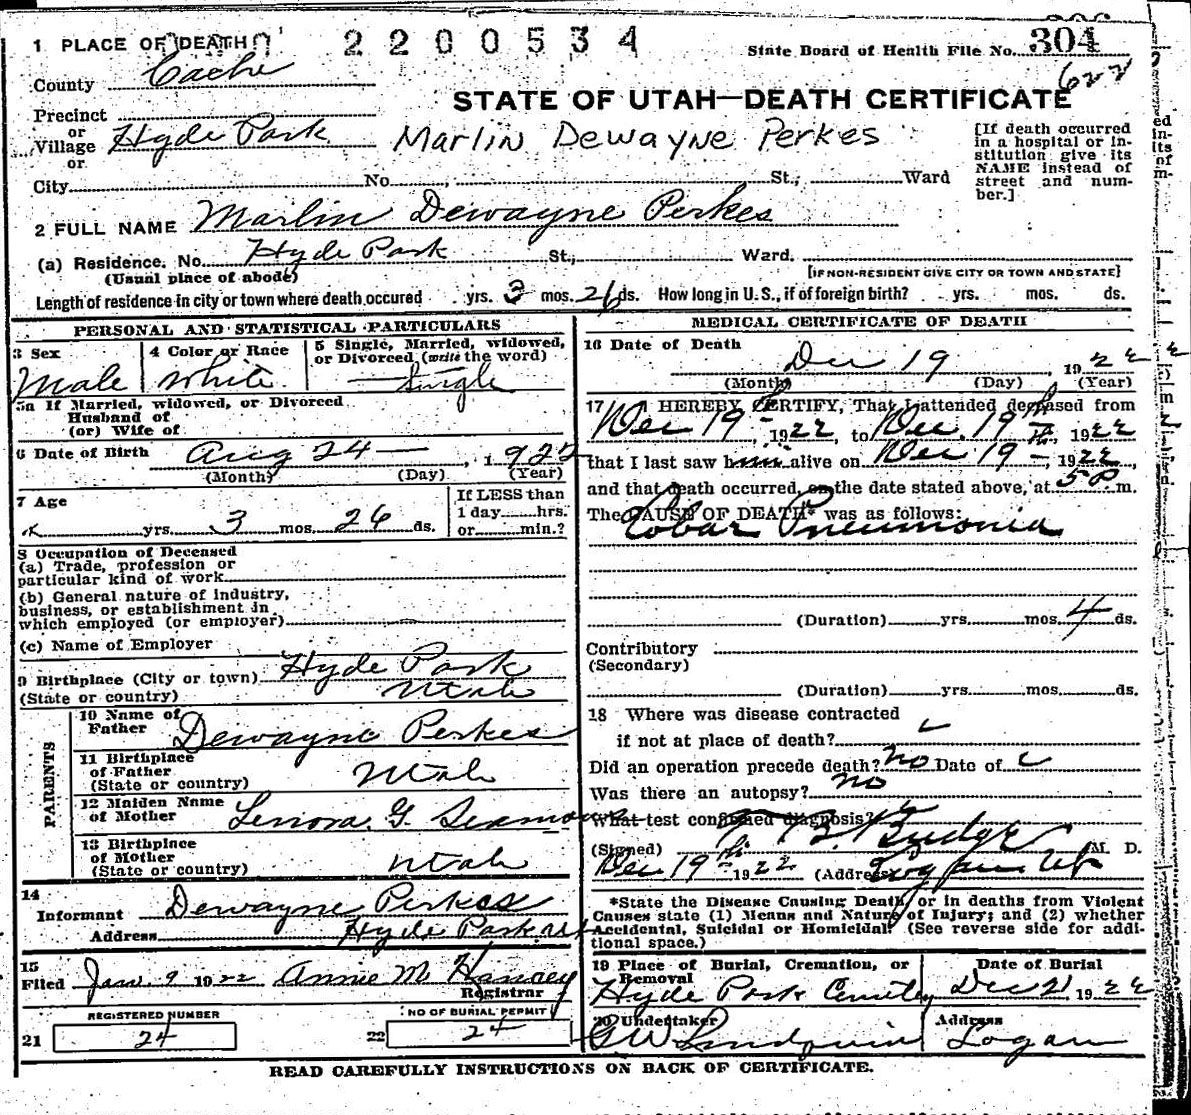 1 PLACE OF DEATH 2200534
State Board of Health File No. 304
622
County Cache
STATE OF UTAH—DEATH CERTIFICATE
Precinct
or
Village Hyde Park Marlin Dewayne Perkes
or
City No. St., Ward
[If death occurred in a hospital or in-
stitution give its
NAME instead of
street and num-
ber.]
2 FULL NAME Marlin Dewayne Perkes
(a) Residence. No. Hyde Park St., Ward.
(Usual place of abode) [IF NON-RESIDENT GIVE CITY OR TOWN AND STATE]
Length of residence in city or town where death occured yrs. 3 mos. 26 ds. How long in U. S., if of foreign birth? yrs. mos. ds.
PERSONAL AND STATISTICAL PARTICULARS
3 Sex Male
4 Color or Race White
5 Single, Married, widowed,
or Divorced (write the word)
Single
5a If Married, widowed, or Divorced
Husband of
(or) Wife of
6 Date of Birth Aug 24 — , 1922
(Month) (Day) (Year)
7 Age
yrs. 3 mos. 26 ds.
If LESS than
1 day hrs.
or min.?
8 Occupation of Deceased
(a) Trade, profession or
particular kind of work
(b) General nature of industry,
business, or establishment in
which employed (or employer)
(c) Name of Employer
9 Birthplace (City or town) Hyde Park
(State or country) Utah
PARENTS
10 Name of
Father Dewayne Perkes
11 Birthplace
of Father Utah
(State or country)
12 Maiden Name
of Mother Lenora G. Seamons
13 Birthplace
of Mother Utah
(State or country)
14
Informant Dewayne Perkes
Address Hyde Park Ut
15
Filed Jan. 9 1922 Annie M Hancey
Registrar
REGISTERED NUMBER
21 24
NO OF BURIAL PERMIT
22 24
MEDICAL CERTIFICATE OF DEATH
16 Date of Death
Dec 19 1922
(Month) (Day) (Year)
17 I HEREBY CERTIFY, That I attended deceased from
Dec 19th, 1922, to Dec. 19th, 1922
that I last saw him alive on Dec 19 —, 1922,
and that death occurred, on the date stated above, at 5 P m.
The CAUSE OF DEATH* was as follows:
Lobar Pneumonia
(Duration) yrs. mos. 4 ds.
Contributory
(Secondary)
(Duration) yrs. mos. ds.
18 Where was disease contracted
if not at place of death?
Did an operation precede death? no Date of
Was there an autopsy? no
What test confirmed diagnosis?
(Signed) Budge M. D.
Dec 19th 1922 (Address) Logan Ut
*State the Disease Causing Death, or in deaths from Violent
Causes state (1) Means and Nature of Injury; and (2) whether
Accidental, Suicidal or Homicidal. (See reverse side for addi-
tional space.)
19 Place of Burial, Cremation, or
Removal
Hyde Park Cemetery
Date of Burial
Dec 21 1922
20 Undertaker
G W Lindquist
Address
Logan
READ CAREFULLY INSTRUCTIONS ON BACK OF CERTIFICATE.